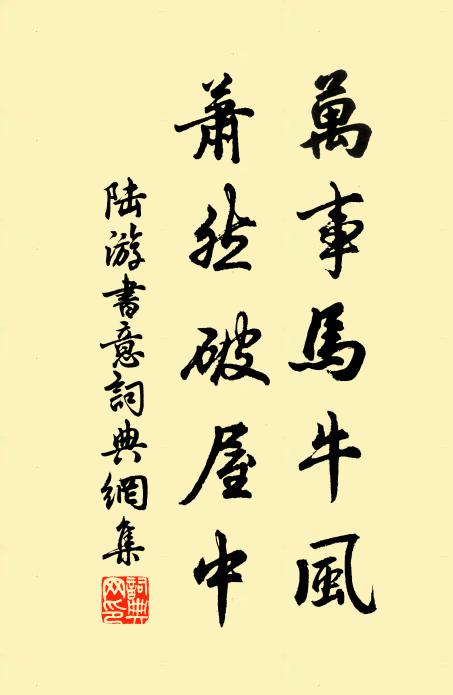 萬事馬牛風
蕭然破屋中
陸游書意詞典網集
詞典網印